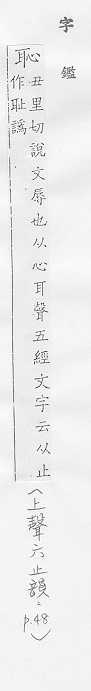 字鑑
恥
丑里切說文辱也从心耳聲五經文字云从止
作耻譌
(上聲六止韻,p.48)